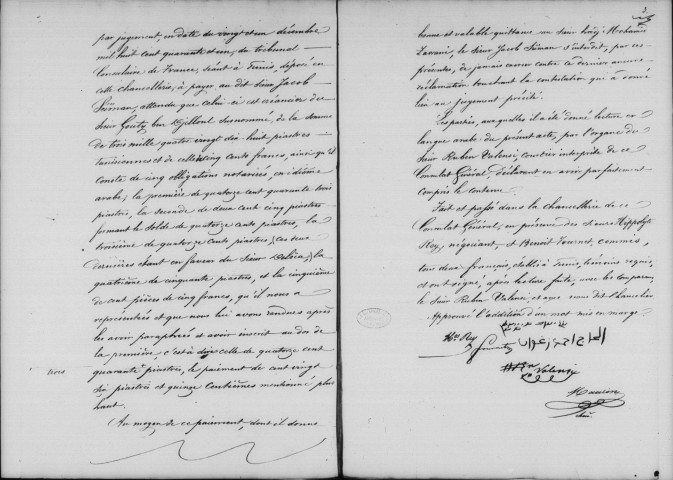 par jugement, en date du vingt et un décembre
mil huit cent quarante et un, du tribunal
Consulaire de France, séant à Tunis, déposé en
cette chancellerie, à payer au dit Sieur Jacob
attendu que celui-ci est créancier des
Sieur ben Djilloul Susnommé, de la somme
de trois mille quatre vingt dix huit piastres
tunisiennes et de celle de cinq cents francs, ainsi qu'il
Conste de cinq obligations notariées, en idiôme
arabe; la première de quatorze cent quarante trois
piastres, la seconde de deux cent cinq piastres
formant le solde de quatorze cents piastres, la
troisième de quatorze cents piastres, ces deux
dernières étant en faveur du Sieur la
quatrième de cinquante piastres, et la cinquième
de cent pièces de cinq francs, qu'il nous a
représentées et que nous lui avons rendues après
les avoir paraphées et avoir inscrit au dos de
la première, c'est à dire celle de quatorze cent
quarante trois piastres, le paiement de cent vingt
six piastres et quinze centièmes mentionné plus
haut.
Au moyen de ce paiement, dont il donne
3
bonne et valable quittance au Sieur Mohamed
le Sieur Jacob s'interdit, par ces
présentes, de jamais exercer contre ce dernier aucune
réclamation touchant la contestation qui a donné
lieu au jugement précité.
Les parties, auxquelles il a été donné lecture en
langue arabe du présent acte, par l'organe du
Sieur Ruben Valensi, courtier interprète de ce
Consulat Général, déclarent en avoir parfaitement
compris le contenu.
Fait et passé dans la chancellerie de ce
Consulat Général, en présence des Sieurs Hippolyte
Rey, négociant, et Benoît Fournet, commis,
tous deux français, établis à Tunis, témoins requis,
et ont signé, après lecture faite, avec les comparants,
le Sieur Ruben Valensi, et nous dit Chancelier
Approuvé l'addition d'un mot mis en marge
Hte Rey
الحاج احمد
Rn Valensi